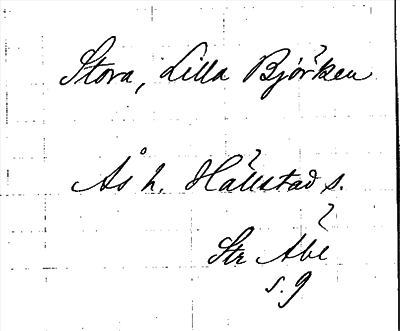 Stora, Lilla Björken
Ås h. Hällstad s.
Str Åbe
s. 9